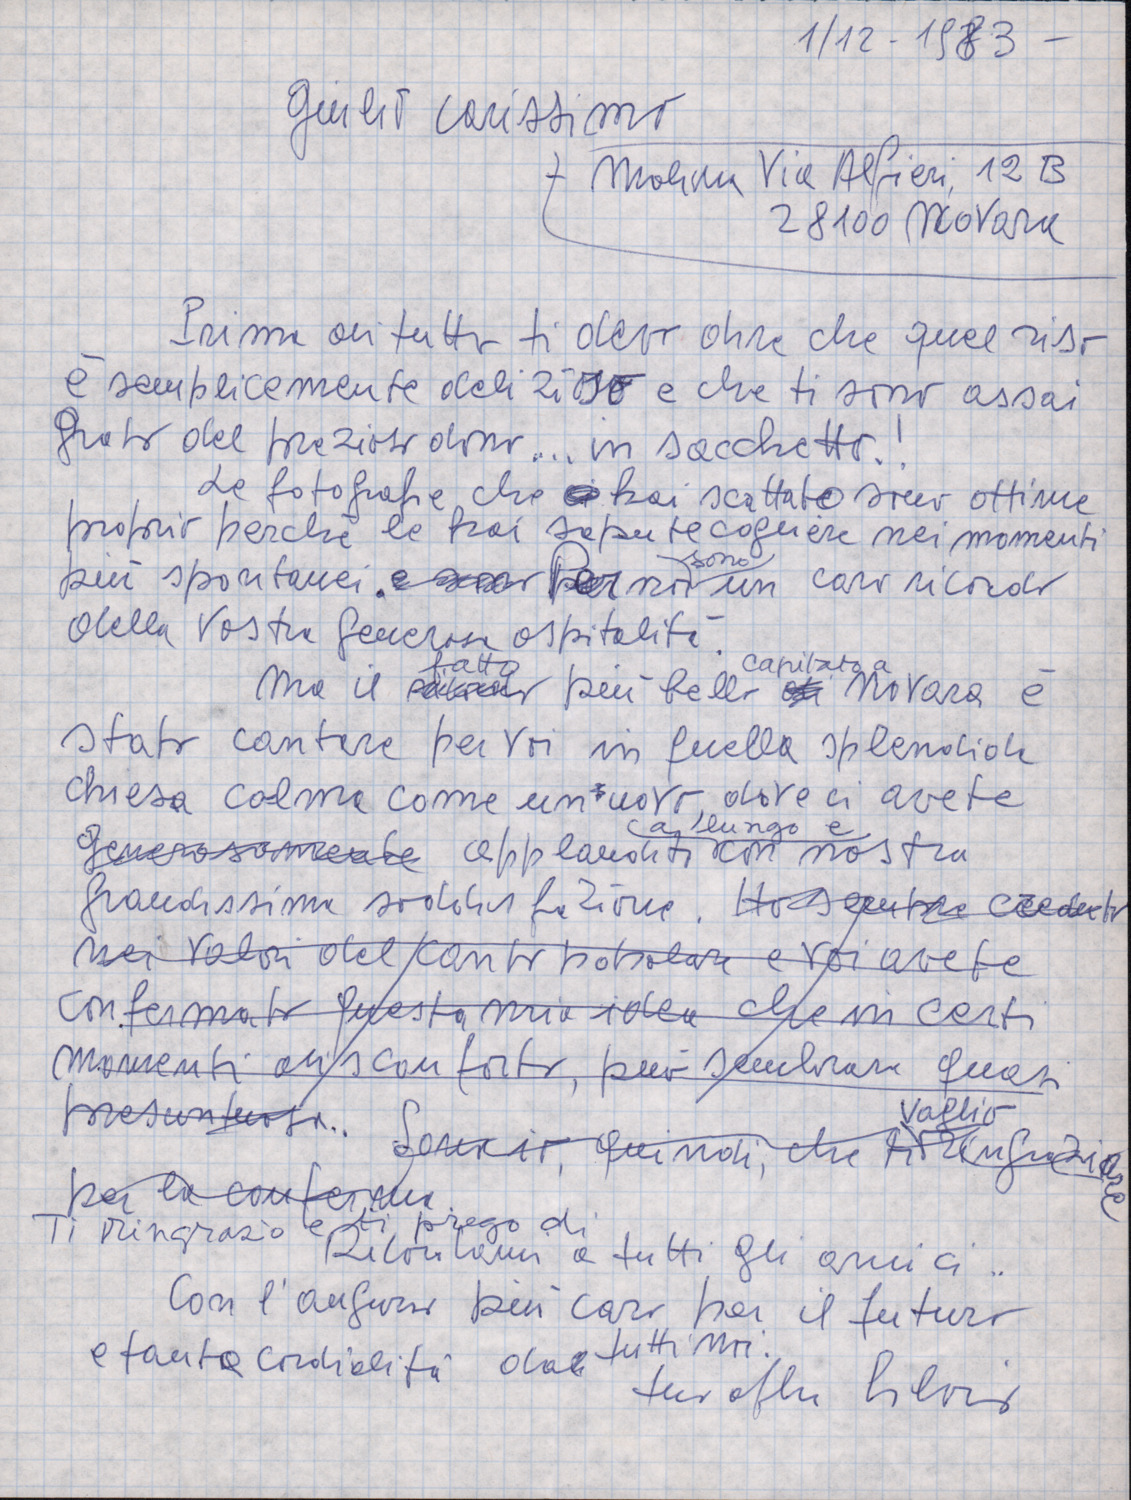 1/12-1983 -
Giulio carissimo
Molina Via Alfieri, 12 B
28100 Novara
Prima di tutto ti devo dire che quel riso
è semplicemente delizioso e che ti sono assai
grato del prezioso dono... in sacchetto.!
Le fotografie che hai scattato sono ottime
proprio perché le hai sapute cogliere nei momenti
più spontanei. e sono Per noi sono un caro ricordo
della vostra generosa ospitalità.
Ma il fatto più bello capitato a Novara è
stato cantare per voi in quella splendida
chiesa colma come un uovo, dove ci avete
generosamente applauditi a lungo e con nostra
grandissima soddisfazione. Ho sempre creduto
nei valori del canto popolare e voi avete
confermato questa mia idea che in certi
momenti di sconforto, può sembrare quasi
presuntuosa..
Sono io, quindi, che ti voglio ringraziare
per la conferma.
Ti ringrazio e ti prego di
Ricordami a tutti gli amici..
Con l'augurio più caro per il futuro
e tanta cordialità da tutti noi.
tuo Silvio